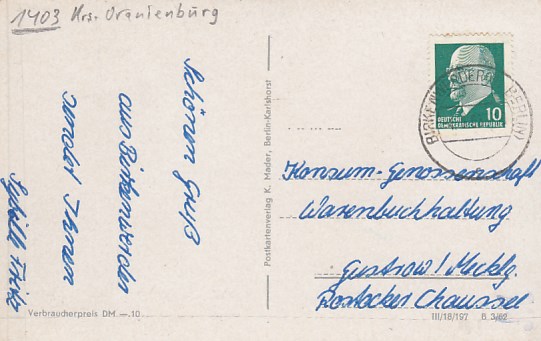 1403 Krs. Oranienburg
Schönen Gruß
aus Birkenwerder
sendet Ihnen
Sybille
Verbraucherpreis DM —.10
Postkartenverlag K. Mader, Berlin-Karlshorst
10
DEUTSCHE
DEMOKRATISCHE REPUBLIK
BIRKENWERDER (B. BERLIN)
Konsum-Genossenschaft
Warenbuchhaltung
Güstrow / Mecklg.
Rostocker Chaussee
III/18/197 B 3/62